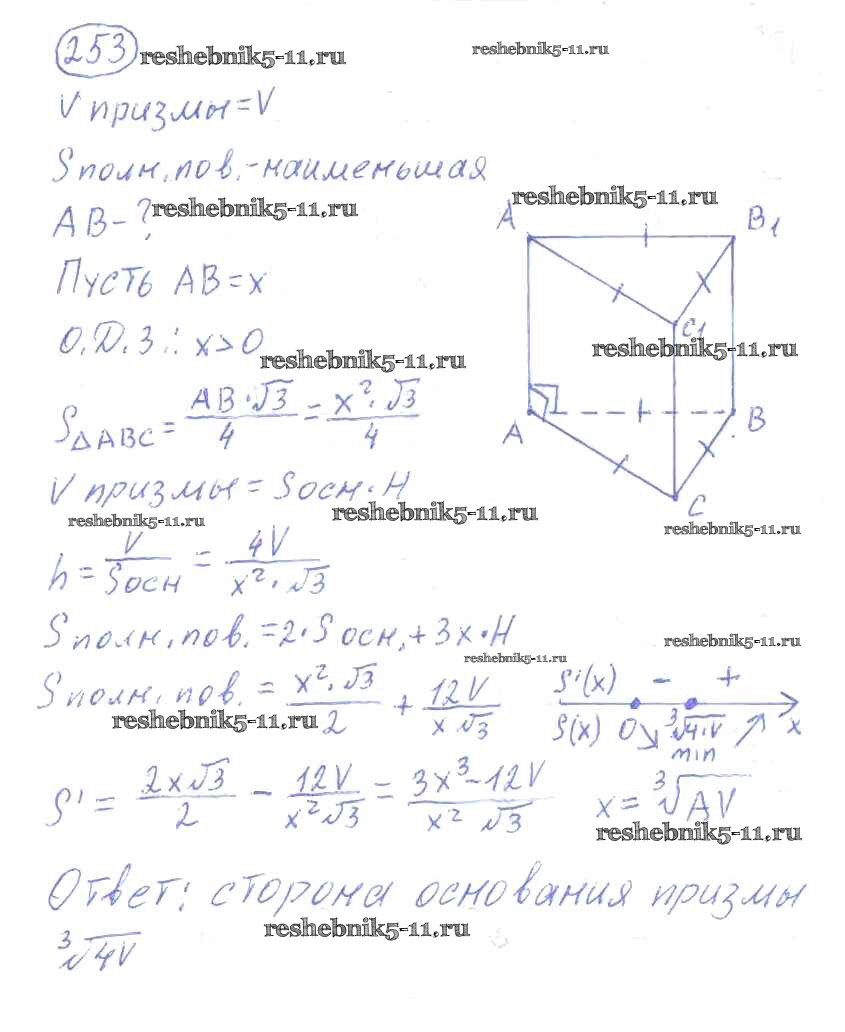 253 reshebnik5-11.ru
reshebnik5-11.ru
V призмы = V
S полн. пов. - наименьшая
AB - ? reshebnik5-11.ru
reshebnik5-11.ru
A B1
Пусть AB = x
О.Д.З.: x > 0
reshebnik5-11.ru
C1
reshebnik5-11.ru
S△ABC = AB·√3/4 = x²·√3/4
A B
C
V призмы = Sосн·H
reshebnik5-11.ru
reshebnik5-11.ru
reshebnik5-11.ru
h = V/Sосн = 4V/x²·√3
S полн. пов. = 2·Sосн. + 3x·H
reshebnik5-11.ru
reshebnik5-11.ru
S полн. пов. = x²·√3/2 + 12V/x√3
reshebnik5-11.ru
S'(x) - +
S(x) 0 ↘ ³√4·V ↗ x
min
S' = 2x√3/2 - 12V/x²√3 = 3x³-12V/x²√3
x = ³√AV
reshebnik5-11.ru
Ответ: сторона основания призмы
³√4V
reshebnik5-11.ru